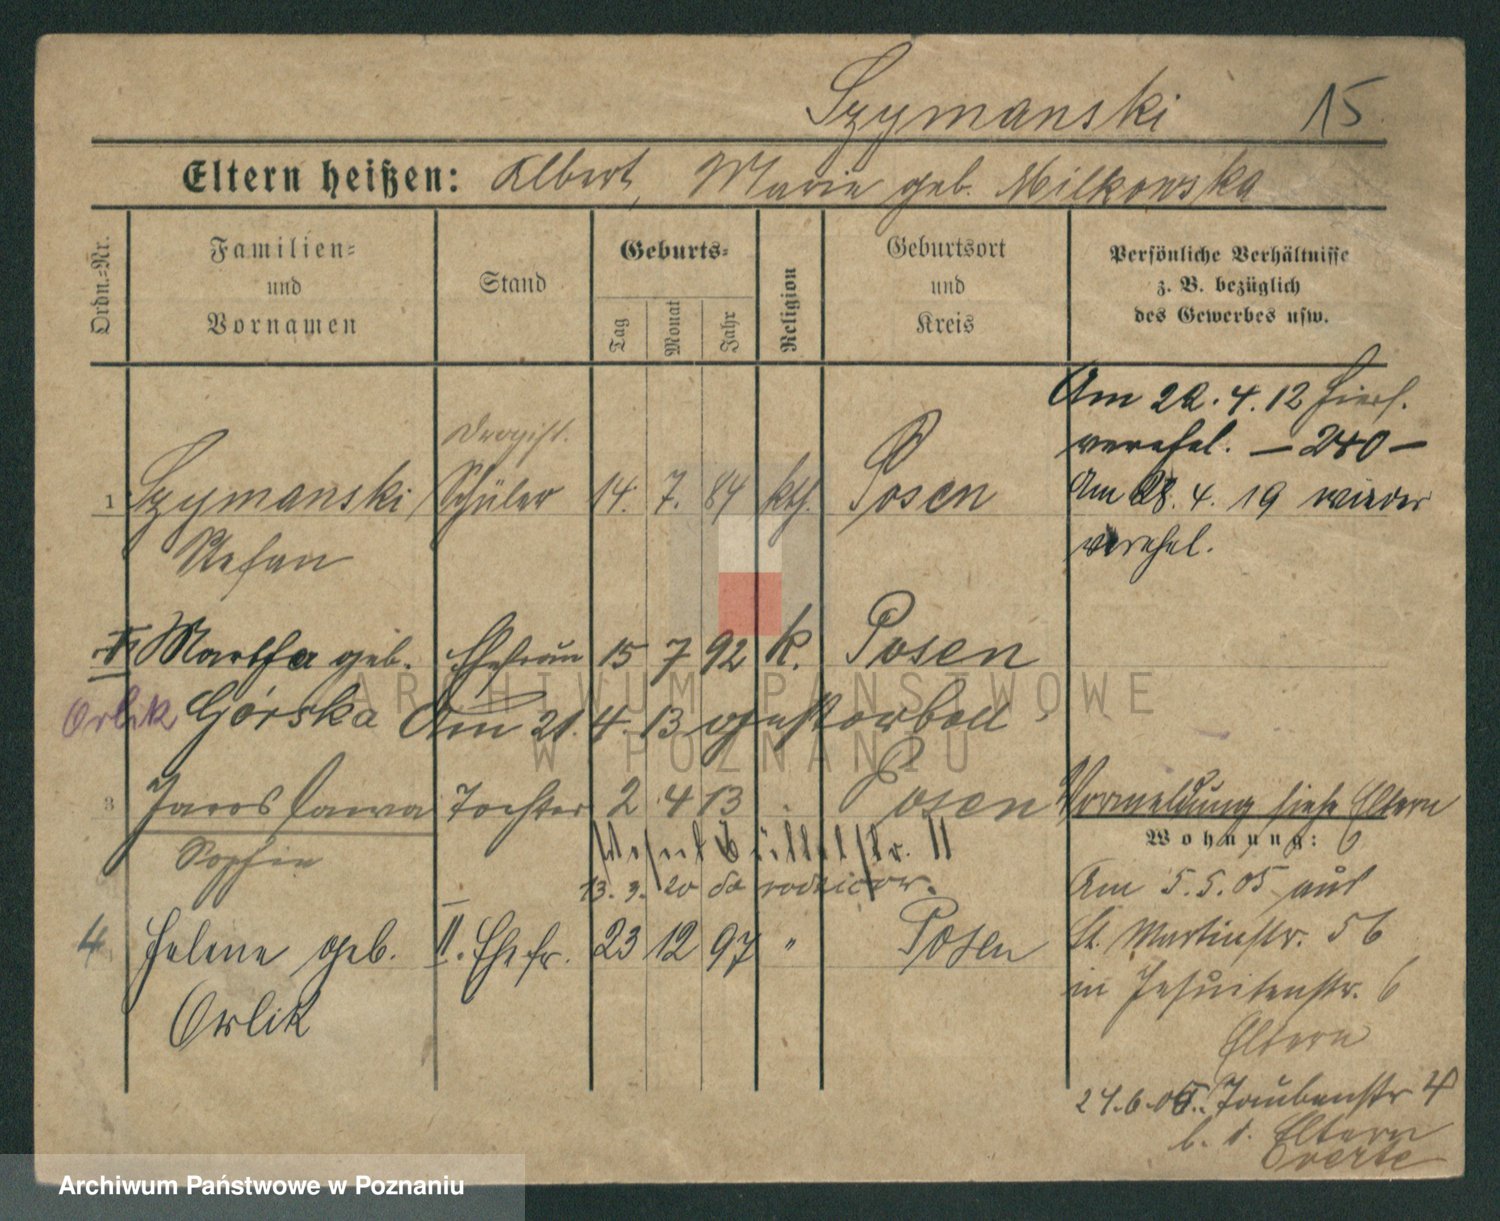 Szymanski 15
Eltern heißen: Albert, Marie geb. Milkowska
Ordn.=Nr.
Familien=
und
Vornamen
Stand
Geburts=
Tag
Monat
Jahr
Religion
Geburtsort
und
Kreis
Persönliche Verhältnisse
z. B. bezüglich
des Gewerbes usw.
Am 22.4.12 hiers.
verehel. — 240 —
Drogist.
1 Szymanski Schüler 14. 7. 84 kth. Posen
Am 28. 4. 19 wieder
verehel.
Stefan
Martha geb. Ehefrau 15 7 92 k. Posen
Orlik Górska Am 21. 4. 13 gestorben
3 Jarosława Tochter 2 4 13 Posen
Vormeldung siehe Eltern
Sophie
Wohnung:
13. 3. 20 do rodziców.
4 Helene geb. II. Ehefr. 23 12 97 " Posen
Orlik
Am 5.5.05 aus
St. Martinstr. 56
in Jesuitenstr. 6
Eltern
24.6.05. Taubenstr 4
b. d. Eltern
Verte
ARCHIWUM PAŃSTWOWE
W POZNANIU
Archiwum Państwowe w Poznaniu